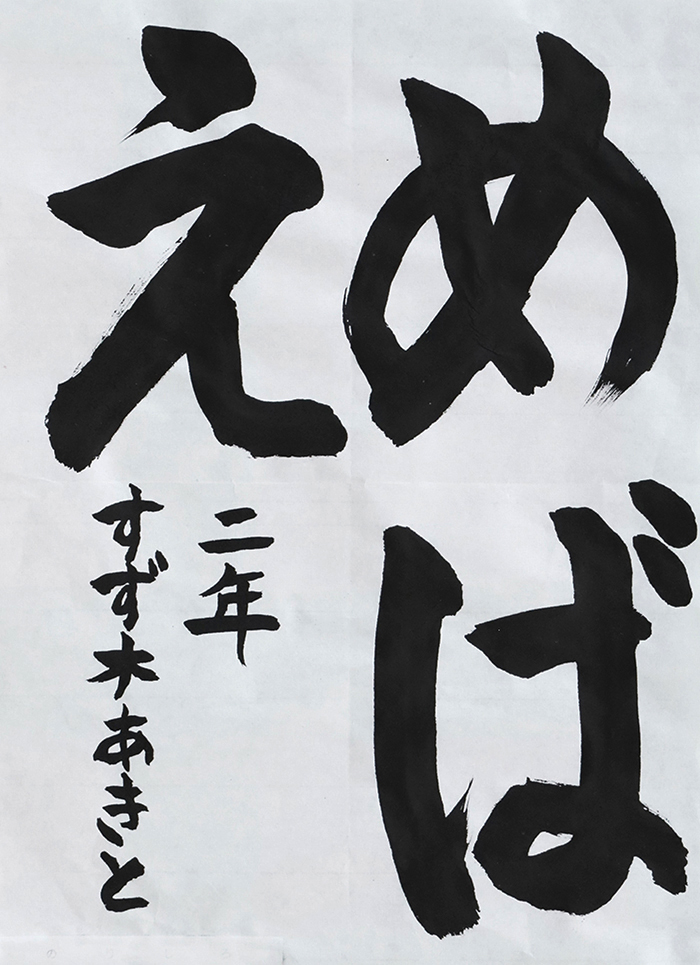 めば
え
二年
すず木あきと